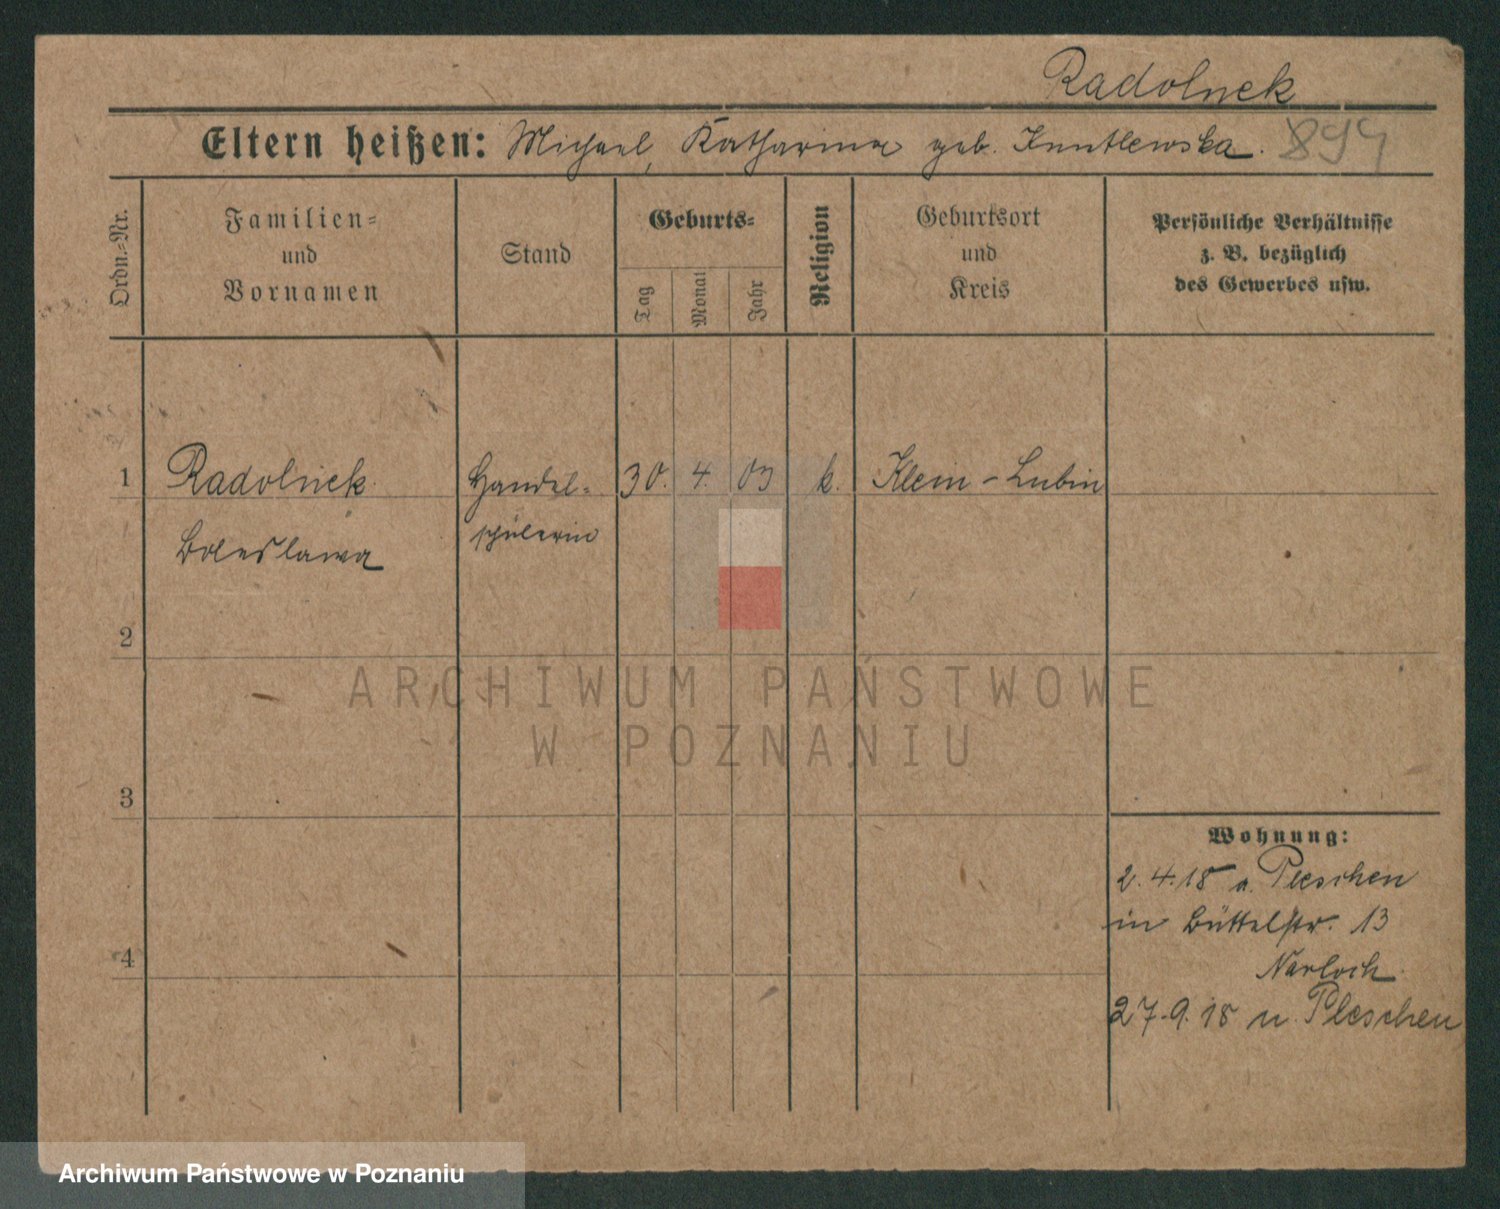 Radolnek
Eltern heißen: Michael, Katharina geb. 894
Ordn.-Nr.
Familien-
und
Vornamen
Stand
Geburts-
Tag
Monat
Jahr
Religion
Geburtsort
und
Kreis
Persönliche Verhältnisse
z. B. bezüglich
des Gewerbes usw.
1 Radolnek Handel- 30. 4. 03 k. Klein-Lubin
Boleslawa schülerin
2
ARCHIWUM PAŃSTWOWE
W POZNANIU
3
Wohnung:
2.4.18 a. Pleschen
in Büttelstr. 13
Narloch
4
27.9.18 n. Pleschen
Archiwum Państwowe w Poznaniu